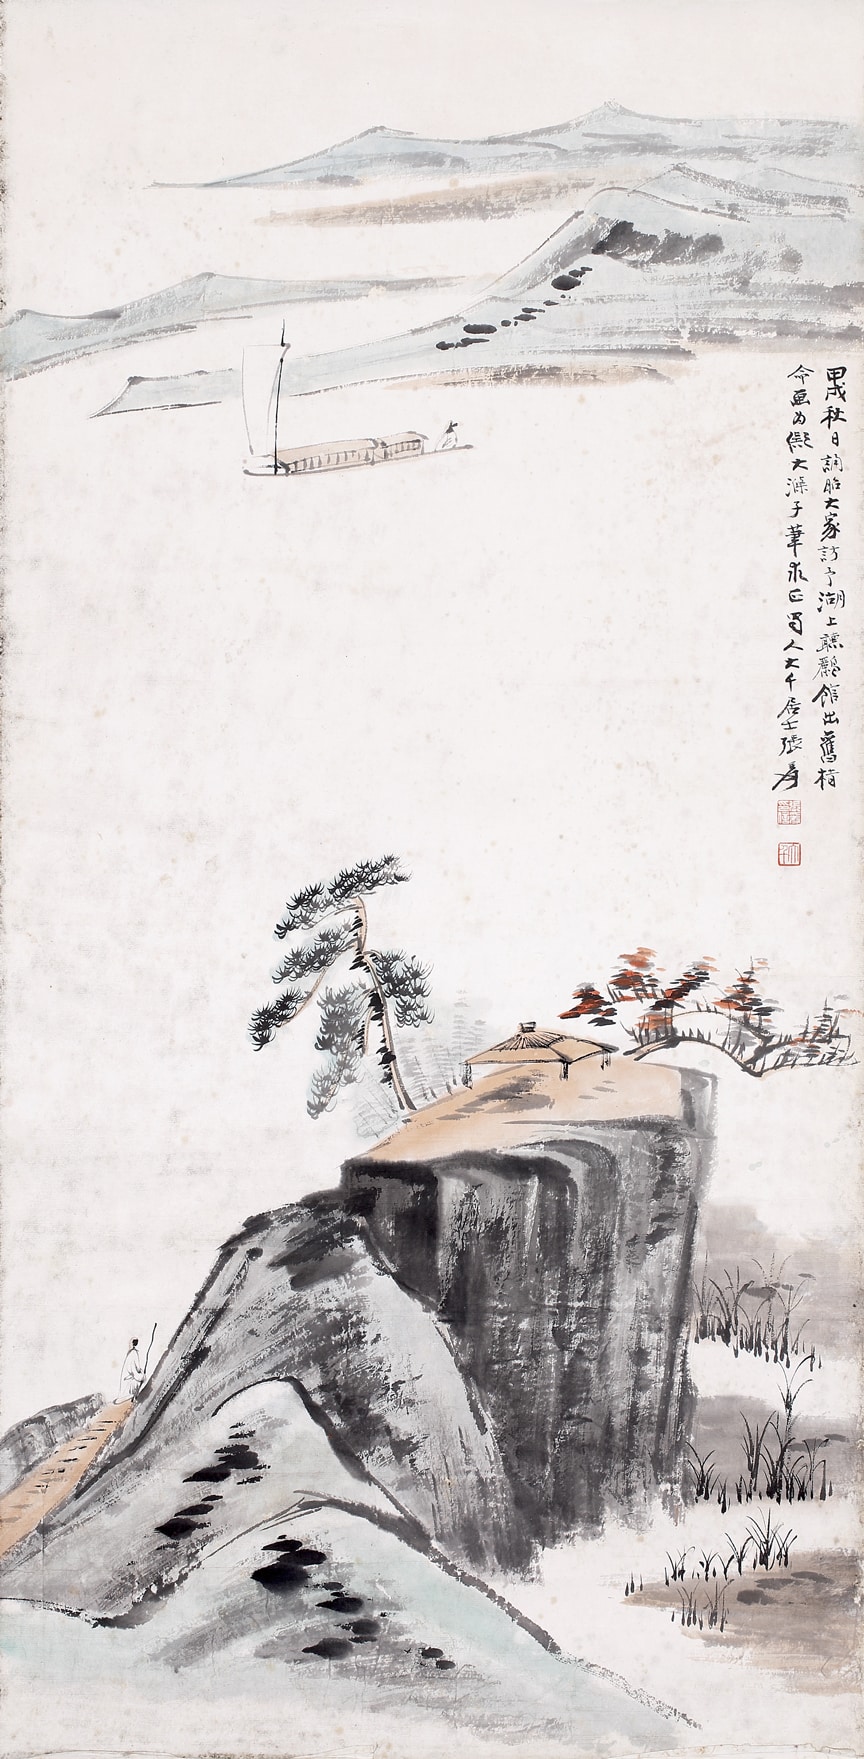 甲戌秋日誦昭大家訪予湖上聽鸝館出舊楮
命畫為儗大滌子筆求正蜀人大千居士張爰